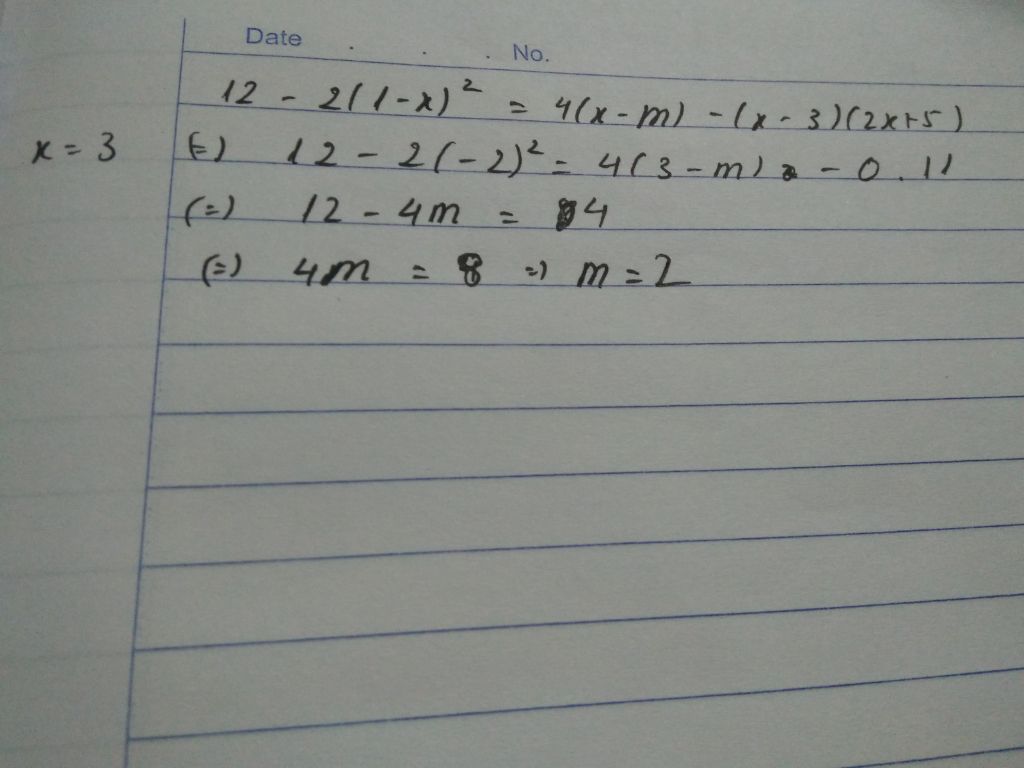 Date . . . No.
12 - 2(1-x)² = 4(x-m) - (x-3)(2x+5)
x = 3 (=) 12 - 2(-2)² = 4(3-m) - 0.11
(=) 12 - 4m = 4
(=) 4m = 8 =) m = 2